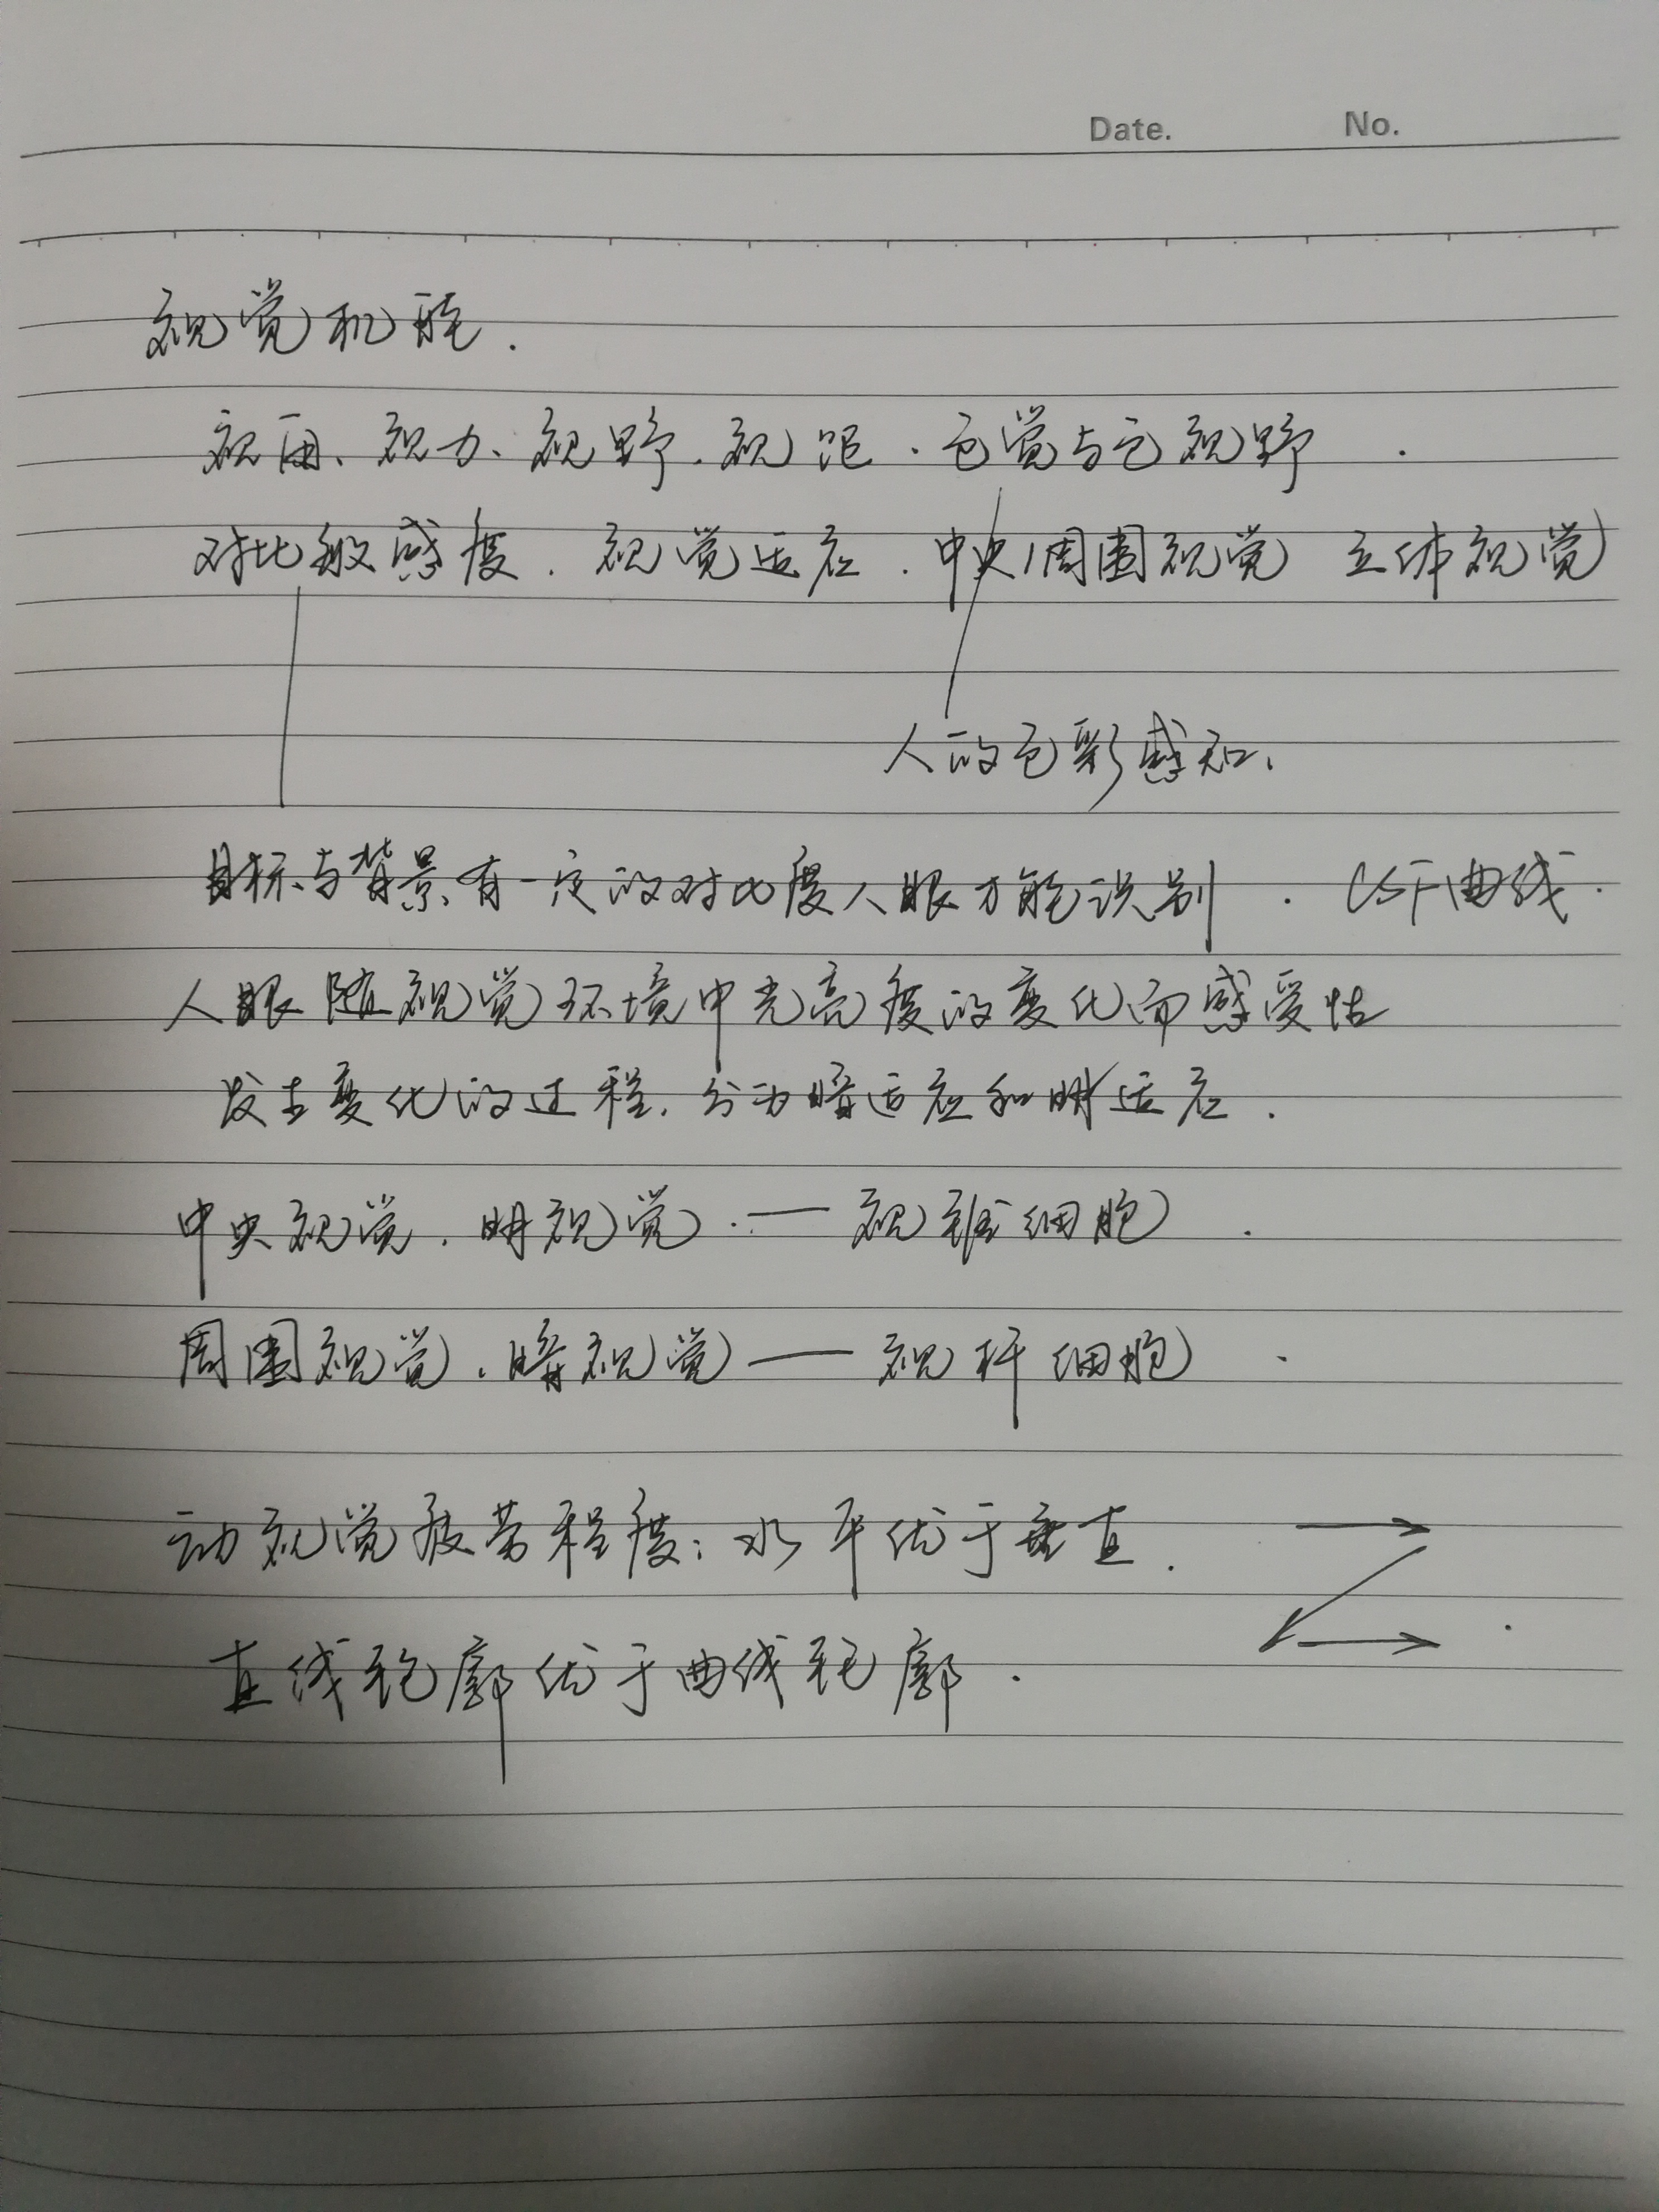 Date. No.
视觉机能.
视角、视力、视野.视距.色觉与色视野.
对比敏感度.视觉适应.中央/周围视觉 立体视觉
人的色彩感知、
目标与背景有一定的对比度人眼才能识别.CSF曲线.
人眼随视觉环境中光亮度的变化而感受性
发生变化的过程.分为暗适应和明适应.
中央视觉.明视觉.——视锥细胞.
周围视觉.暗视觉——视杆细胞.
动视觉疲劳程度:水平优于垂直.
直线轮廓优于曲线轮廓.